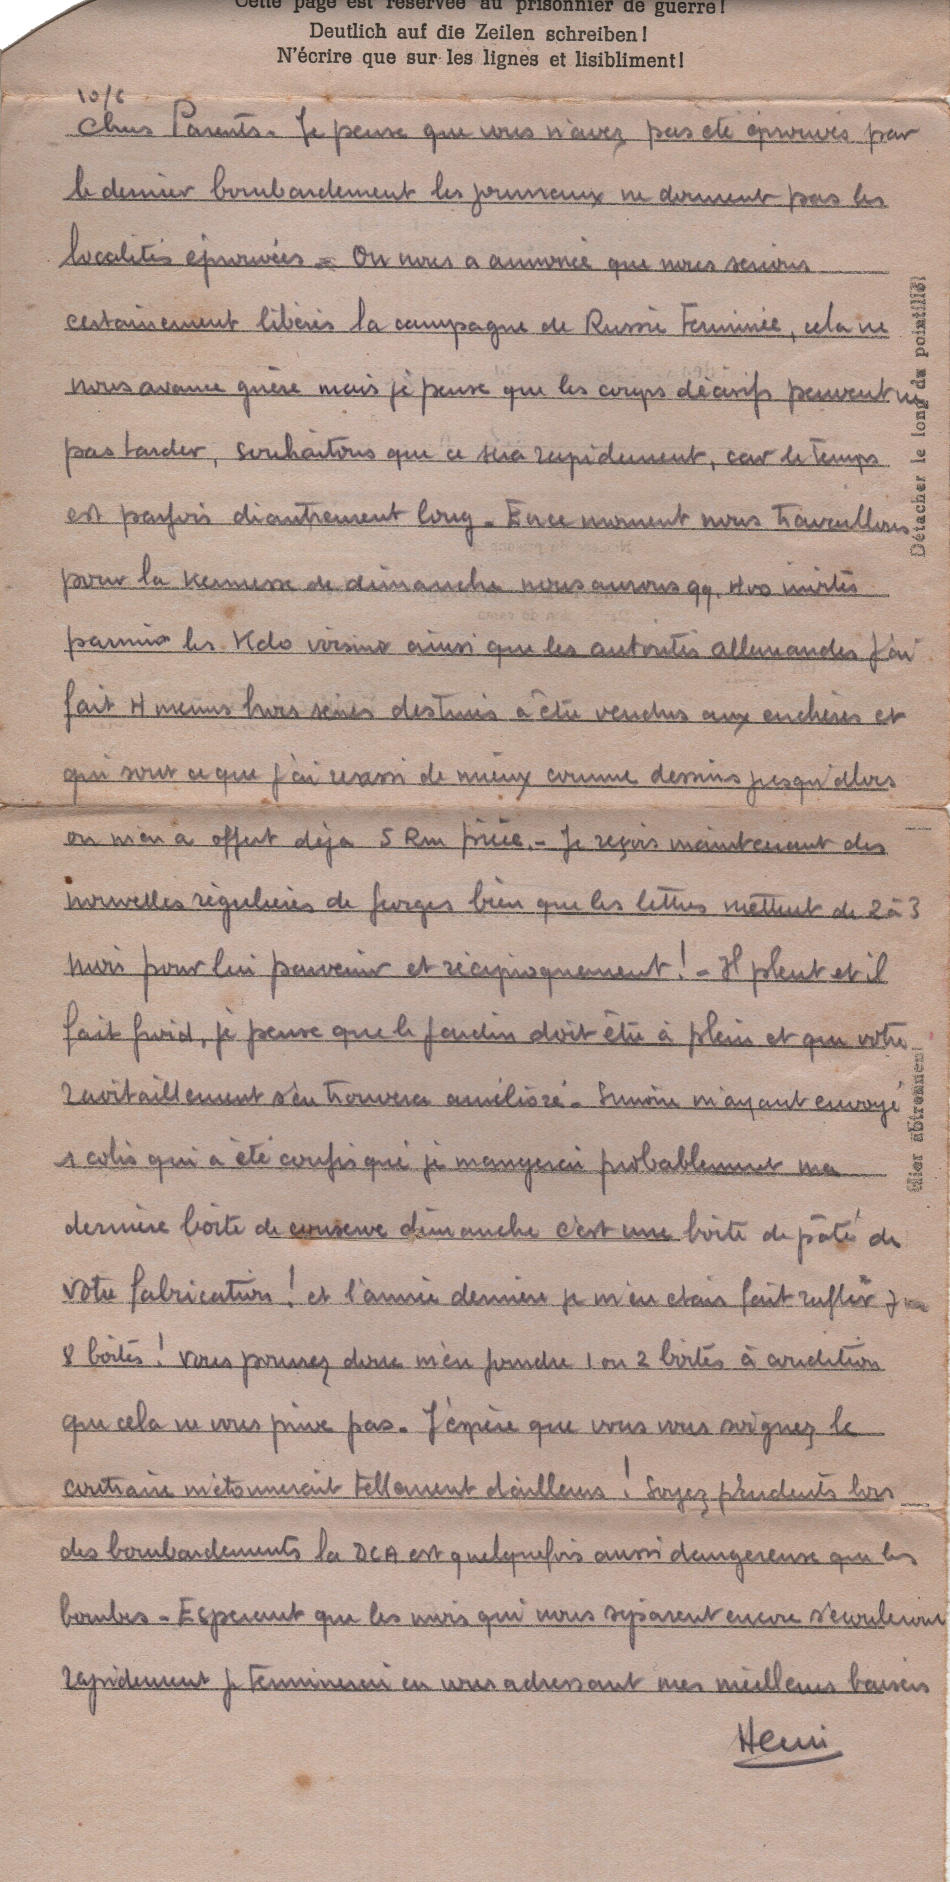 Cette page est réservée au prisonnier de guerre!
Deutlich auf die Zeilen schreiben!
N'écrire que sur les lignes et lisiblement!
10/6
Chers Parents. Je pense que vous n'avez pas été éprouvés par
le dernier bombardement les journaux ne donnent pas les
localités éprouvées - On nous a annoncé que nous serions
certainement libérés la campagne de Russie terminée, cela ne
nous avance guère mais je pense que les coups décisifs peuvent ne
pas tarder, souhaitons que ce sera rapidement, car le temps
est parfois diantrement long - En ce moment nous travaillons
pour la Kermesse de dimanche nous aurons qq. 400 invités
parmis les Kdo voisins ainsi que les autorités allemandes j'ai
fait 4 menus hors séries destinés à être vendus aux enchères et
qui sont ce que j'ai réussi de mieux comme dessins jusqu'alors
on m'en a offert déja 5 Rm pièce. - Je reçois maintenant des
nouvelles régulières de Georges bien que les lettres mettent de 2 à 3
mois pour lui parvenir et réciproquement! - Il pleut et il
fait froid, je pense que le jardin doit être à plein et que votre
ravitaillement s'en trouvera amélioré - Simone m'ayant envoyé
1 colis qui a été confisqué je mangerai probablement ma
dernière boîte de conserve dimanche c'est une boîte de pâté de
votre fabrication! et l'année dernière je m'en étais fait rafler 7
8 boîtes! Vous pouvez donc m'en joindre 1 ou 2 boîtes à condition
que cela ne vous prive pas. J'espère que vous vous soignez le
contraire m'étonnerait tellement d'ailleurs! Soyez prudents lors
des bombardements la DCA est quelquefois aussi dangereuse que les
bombes - Esperant que les mois qui nous séparent encore s'écouleront
rapidement je terminerai en vous adressant mes meilleurs baisers
Henri
Détacher le long du pointillé!
Hier abtrennen!